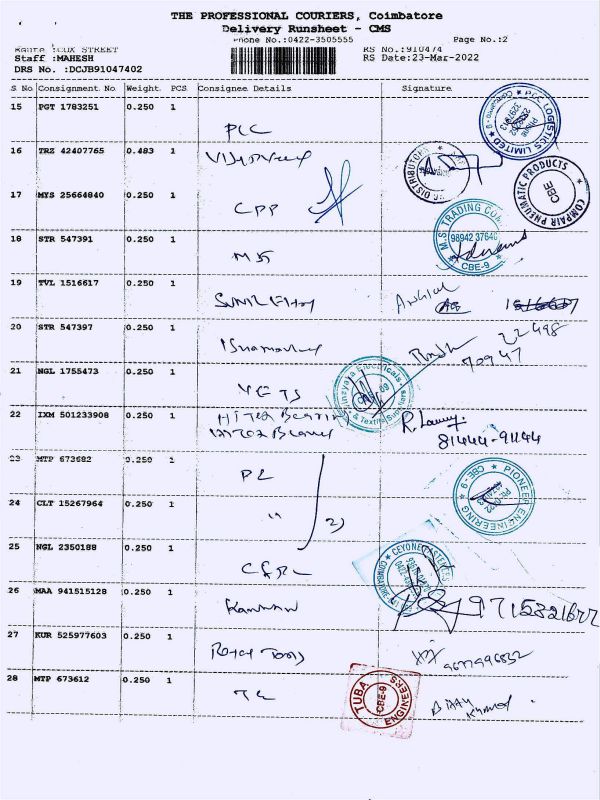 THE PROFESSIONAL COURIERS, Coimbatore
Delivery Runsheet - CMS
Phone No.:0422-3505555 Page No.:2
Route :COX STREET RS No.:910474
Staff :MAHESH RS Date:23-Mar-2022
DRS No. :DCJB91047402
S No Consignment No Weight PCS Consignee Details Signature
15 PGT 1783251 0.250 1
PLC
PCC LOGISTICS LIMITED
16 TRZ 42407765 0.483 1
DISTRIBUTORS
17 MYS 25664840 0.250 1
CPP
COMPAIR PNEUMATIC PRODUCTS
CBE
18 STR 547391 0.250 1
M.S. TRADING
98942 37640
CBE-9
19 TVL 1516617 0.250 1
20 STR 547397 0.250 1
22498
70947
21 NGL 1755473 0.250 1
VETS
Vinayaka Electricals
& Textile
22 IXM 501233908 0.250 1
HITEX Bearing
81444-91144
23 MTP 673682 0.250 1
PE
PIONEER ENGINEERING
CBE-9
24 CLT 15267964 0.250 1
" 2)
25 NGL 2350188 0.250 1
CEYONE
26 MAA 941515128 0.250 1
Kannan
9715321677
27 KUR 525977603 0.250 1
Royal Tools
28 MTP 673612 0.250 1
TE
TUBA ENGINEERS
CBE-9
Vijay
Kumar